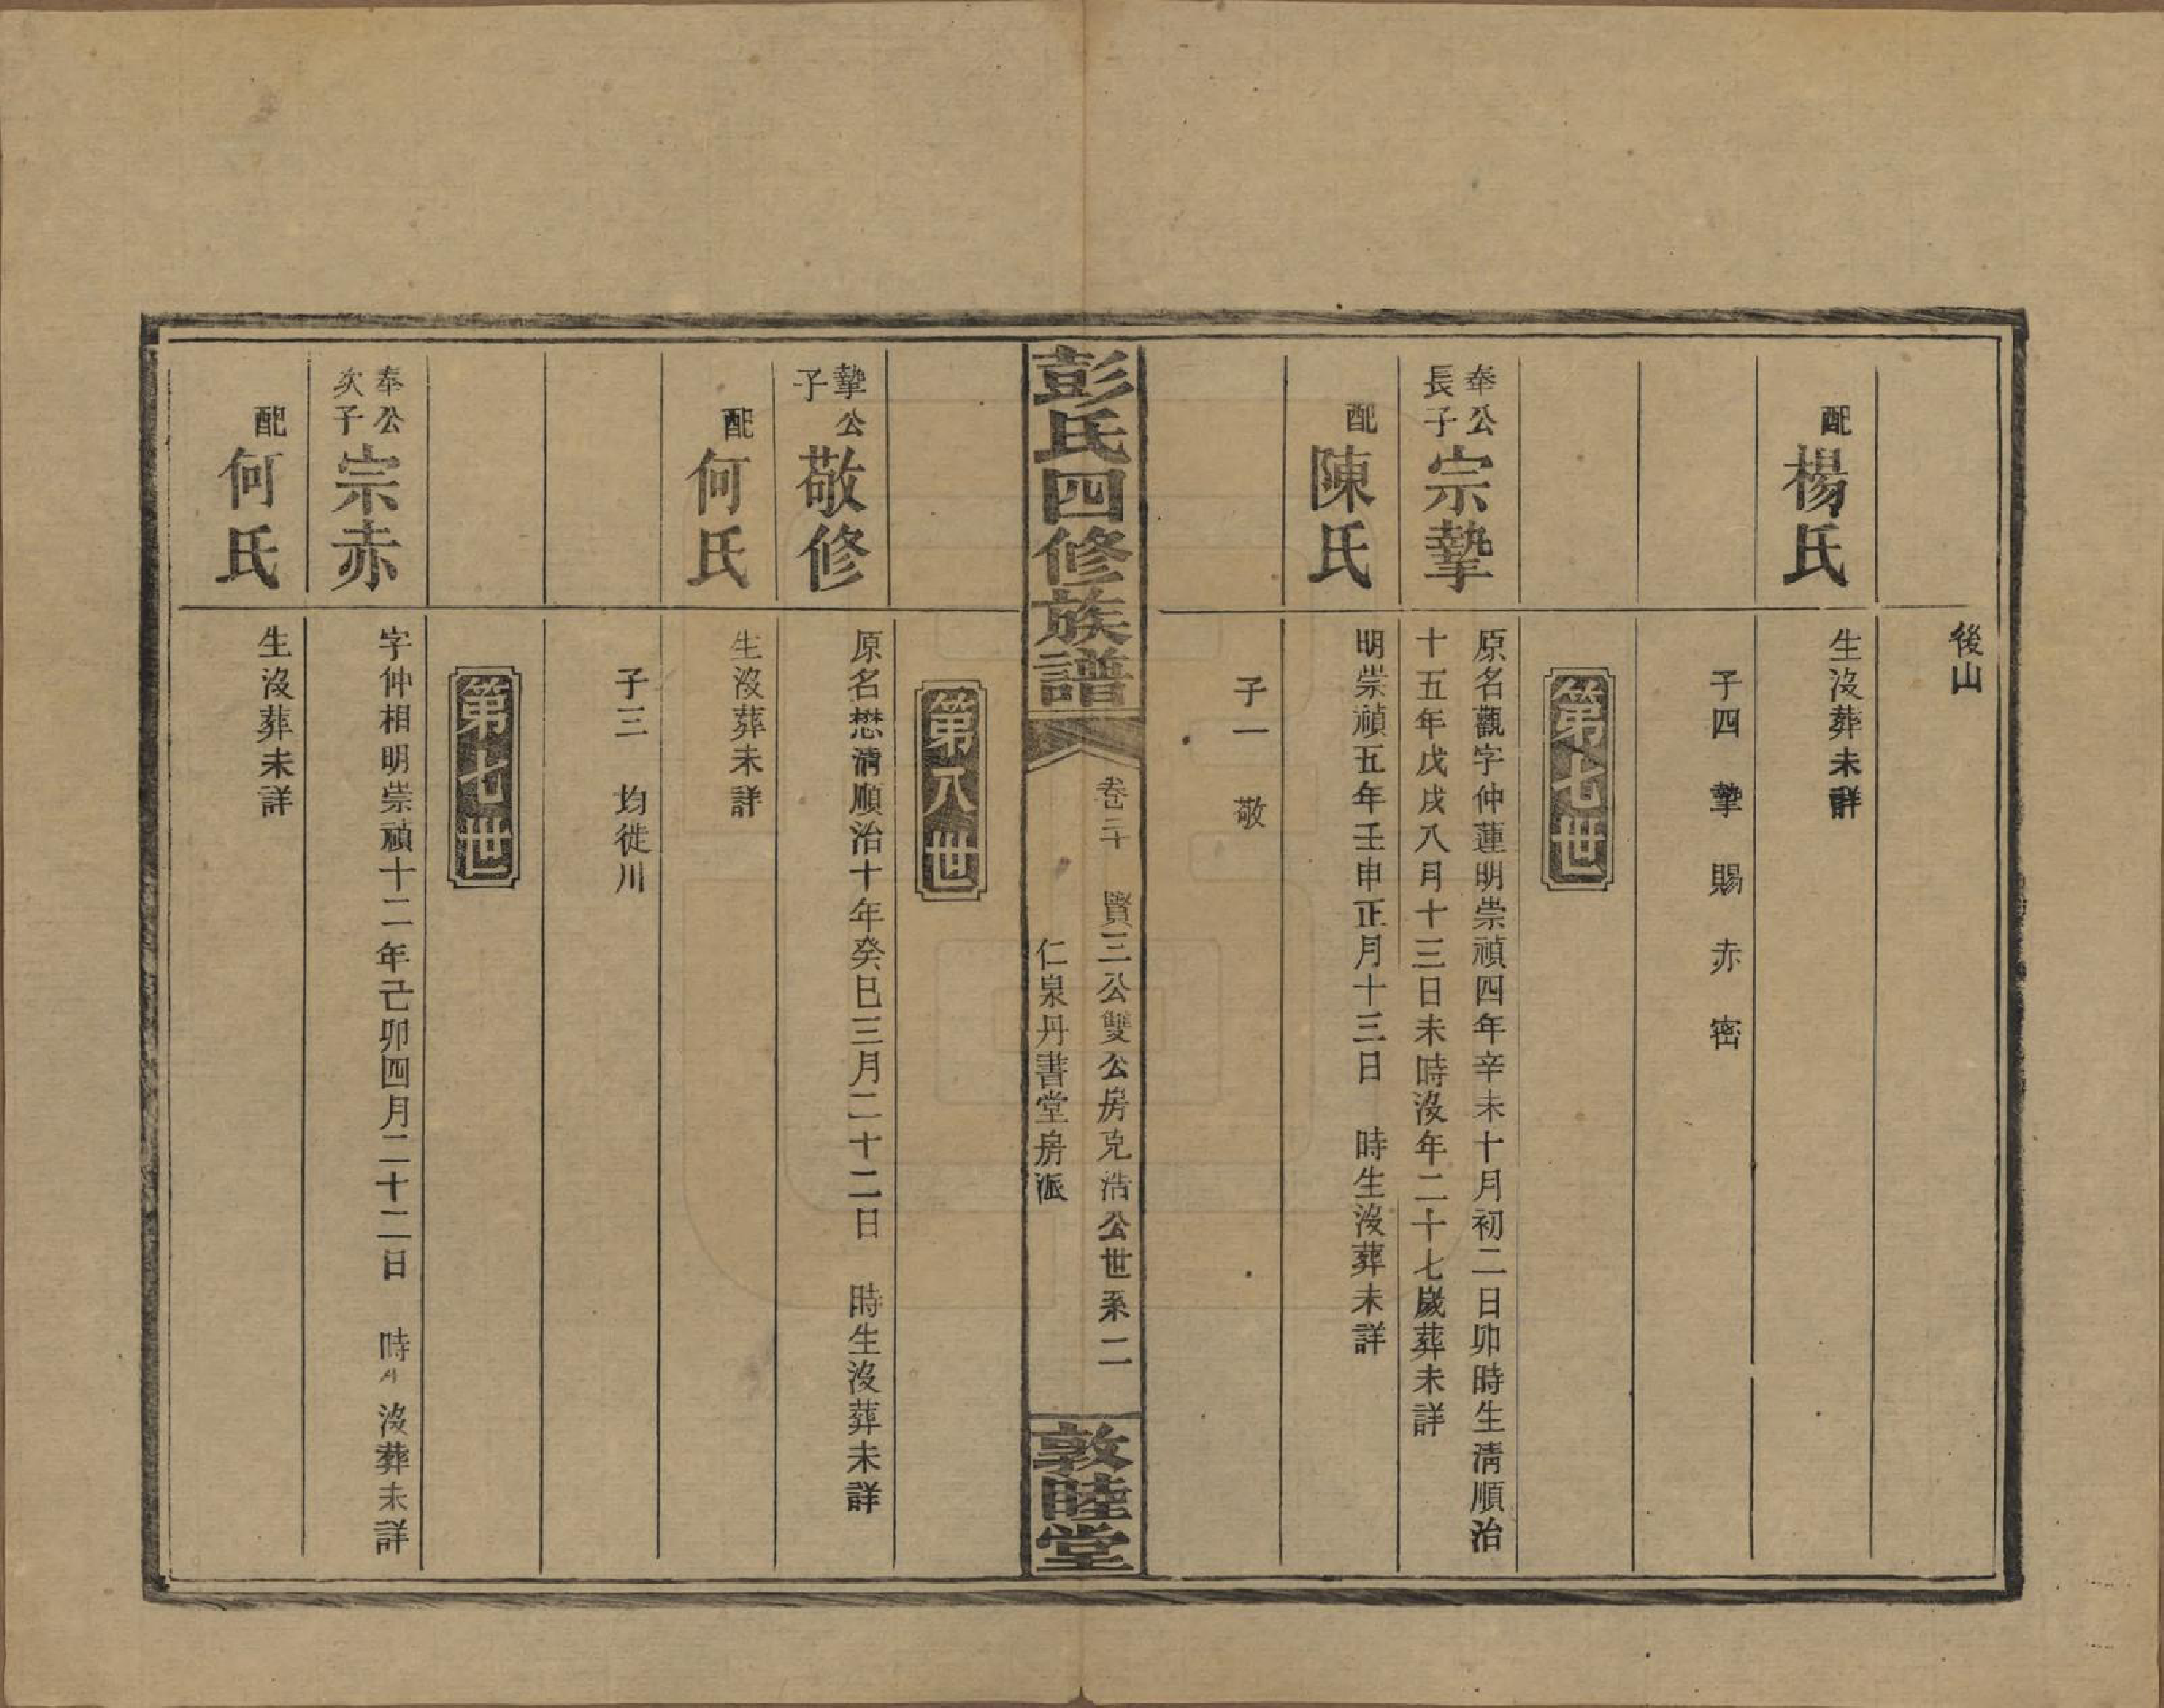 後山
配楊氏
生沒葬未詳
子四　摯　賜　赤　密
第七世
奉公長子宗摯
原名觀字仲蓮明崇禎四年辛未十月初二日卯時生淸順治
十五年戊戌八月十三日未時沒年二十七歲葬未詳
配陳氏
明崇禎五年壬申正月十三日　時生沒葬未詳
子一　敬
彭氏四修族譜
卷三十　賢三公雙公房克浩公世系二
仁泉丹書堂房派
敦睦堂
第八世
摯公子敬修
原名懋淸順治十年癸巳三月二十二日　時生沒葬未詳
配何氏
生沒葬未詳
子三　均徙川
第七世
奉公次子宗赤
字仲相明崇禎十二年己卯四月二十二日　時　沒葬未詳
配何氏
生沒葬未詳